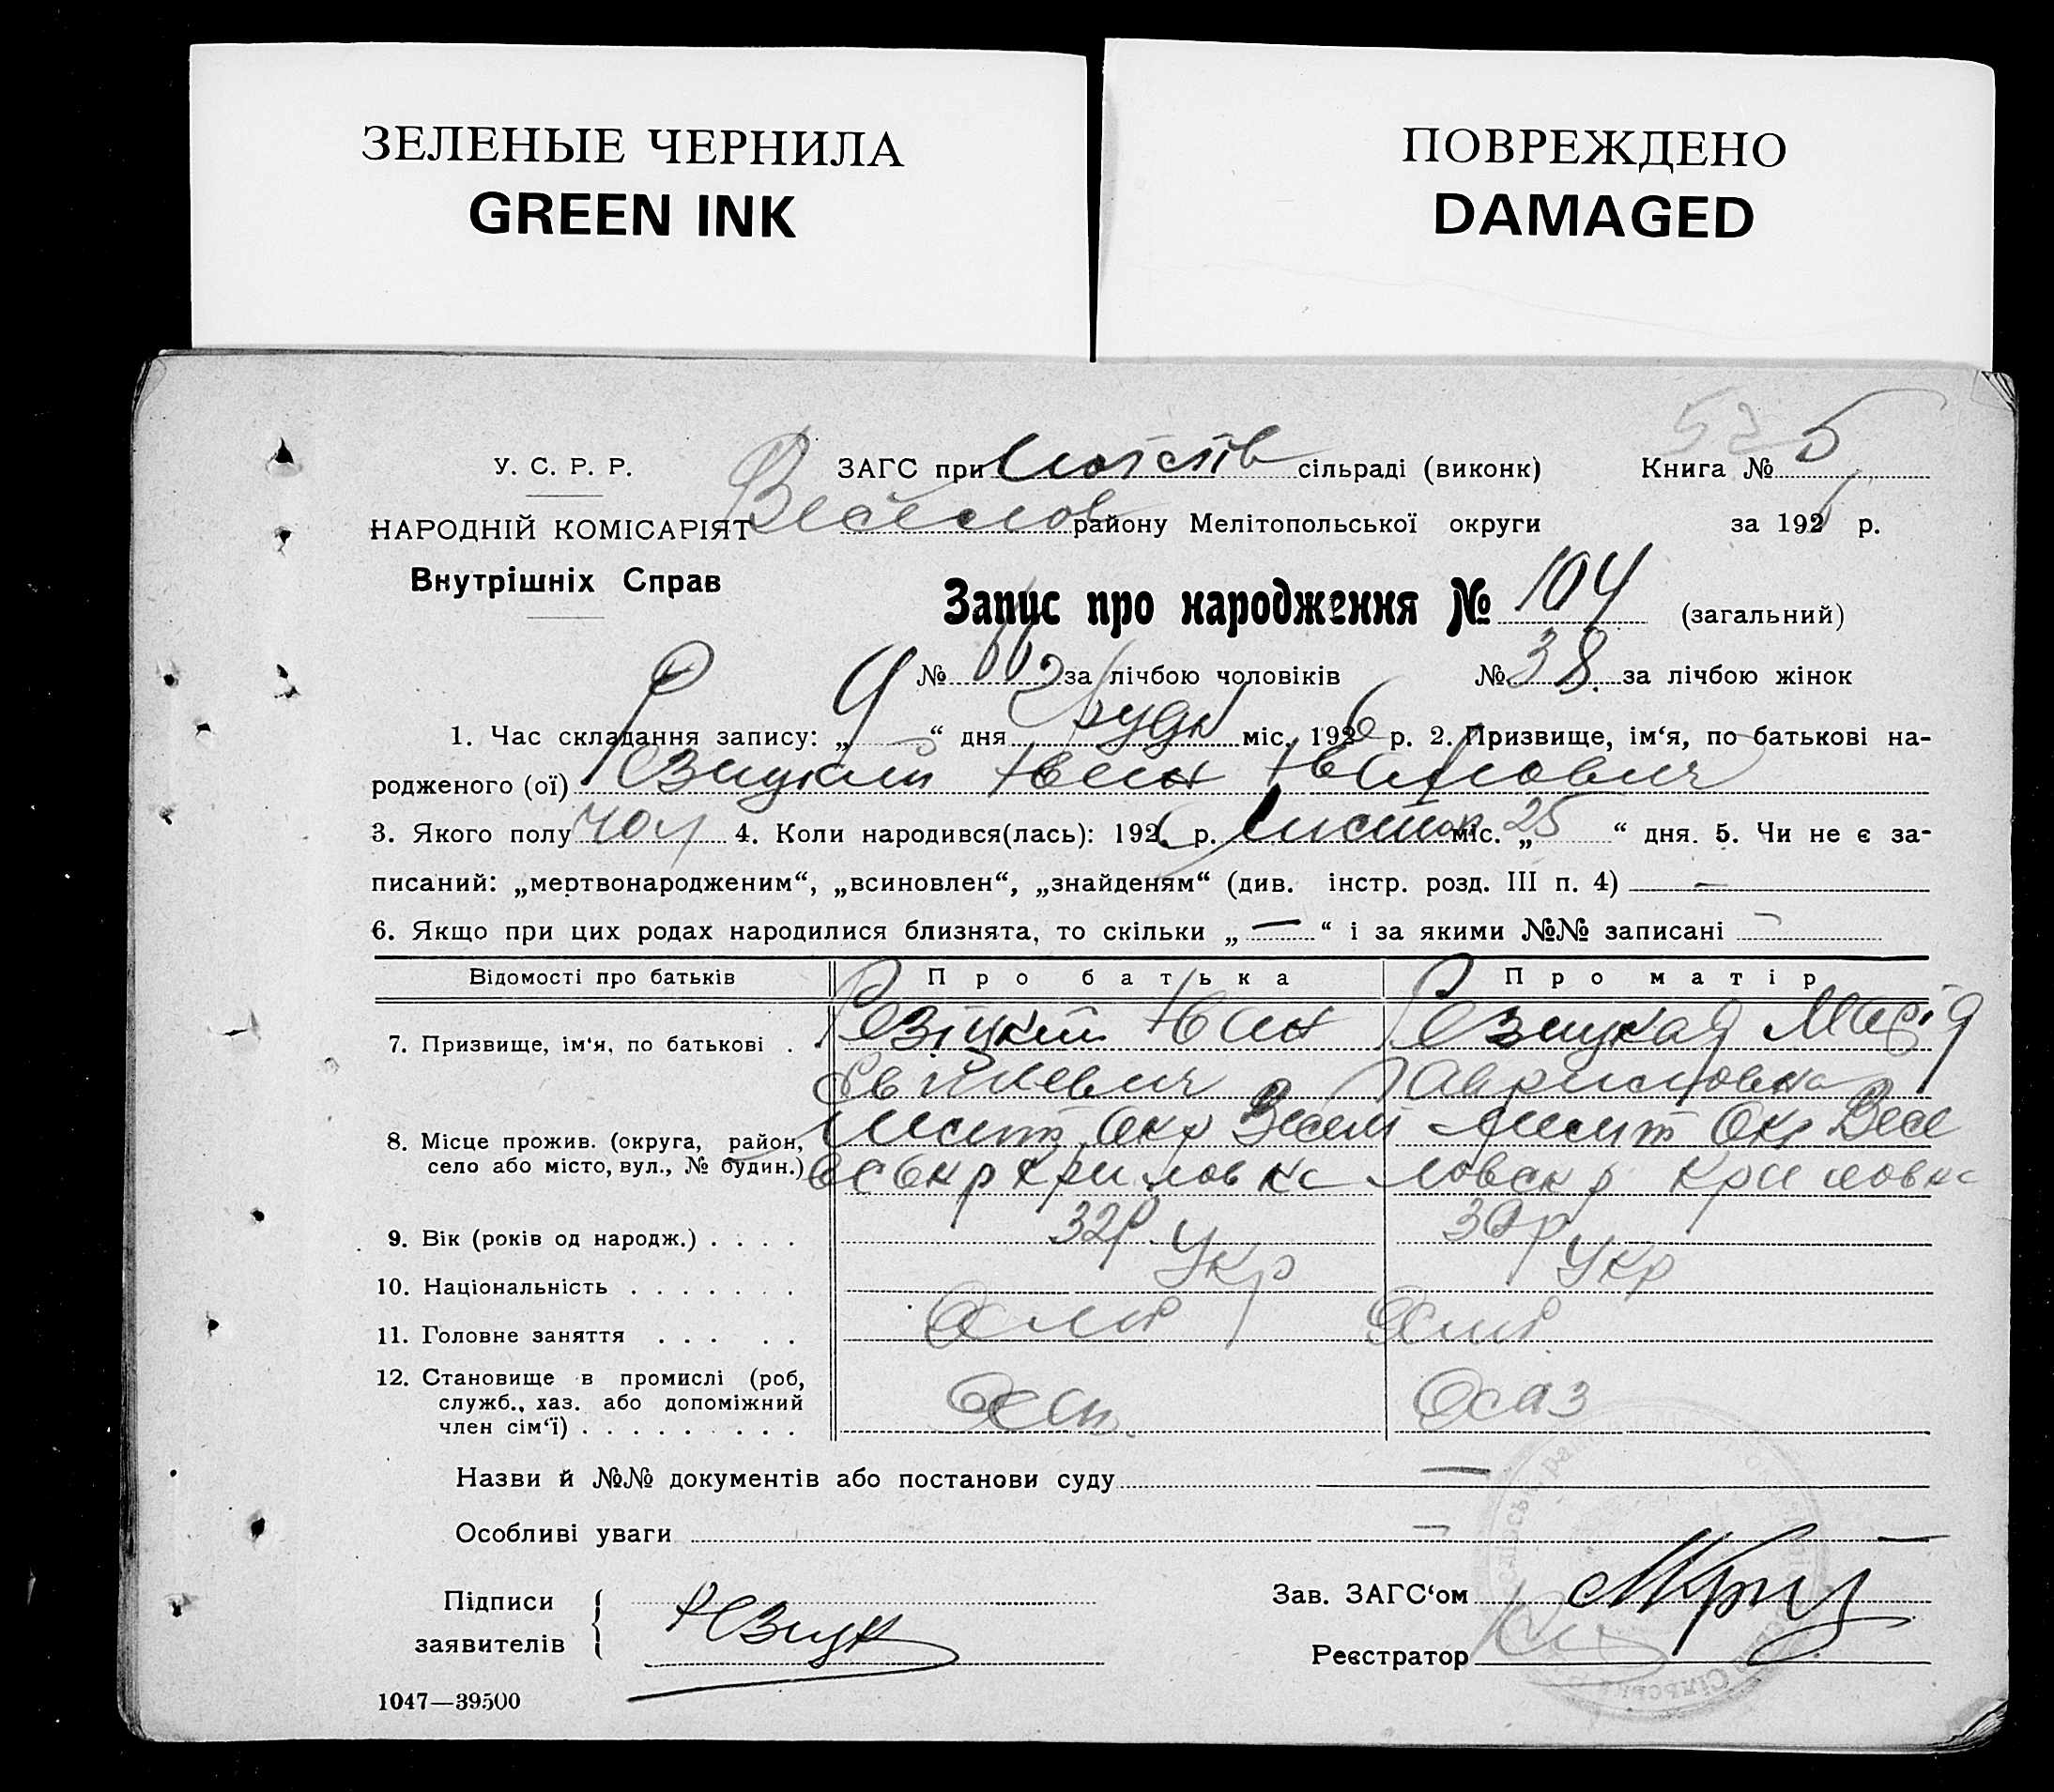 ЗЕЛЕНЫЕ ЧЕРНИЛА
GREEN INK
ПОВРЕЖДЕНО
DAMAGED
У. С. Р. Р.
НАРОДНІЙ КОМІСАРІЯТ
Внутрішніх Справ
ЗАГС при сільраді (виконк)
Веселов району Мелітопольської округи
Книга № 5
за 192 р.
Запис про народження № 104 (загальний)
№ за лічбою чоловіків № 38. за лічбою жінок
1. Час складання запису: „ 9 “ дня Грудн міс. 1926 р. 2. Призвище, ім‘я, по батькові на-
родженого (ої) Резицкий Иван Иванович
3. Якого полу чол 4. Коли народився(лась): 1926 р. Листоп міс. „ 25 “ дня. 5. Чи не є за-
писаний: „мертвонародженим“, „всиновлен“, „знайденям“ (див. інстр. розд. III п. 4) —
6. Якщо при цих родах народилися близнята, то скільки „ — “ і за якими №№ записані —
Відомості про батьків Про батька Про матір
7. Призвище, ім‘я, по батькові . Резіцкий Иван Резицкая Марія
Гавриловна
8. Місце прожив. (округа, район, Мелит Окр Весел Мелит Окр Весе
село або місто, вул., № будин.) Криловка ловск р Криловка
9. Вік (років од народж.) . . . . 32р 30р
10. Національність . . . . . . . Укр Укр
11. Головне заняття . . . . .
12. Становище в промислі (роб,
служб., хаз. або допоміжний
член сім‘ї) . . . . . . . . .
Назви й №№ документів або постанови суду —
Особливі уваги —
Підписи
заявителів
Резицк
Зав. ЗАГС‘ом
Реєстратор
1047—39500